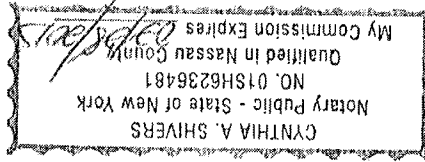 CYNTHIA A. SHIVERS
Notary Public - State of New York
NO. 01SH6236481
Qualified in Nassau County
My Commission Expires